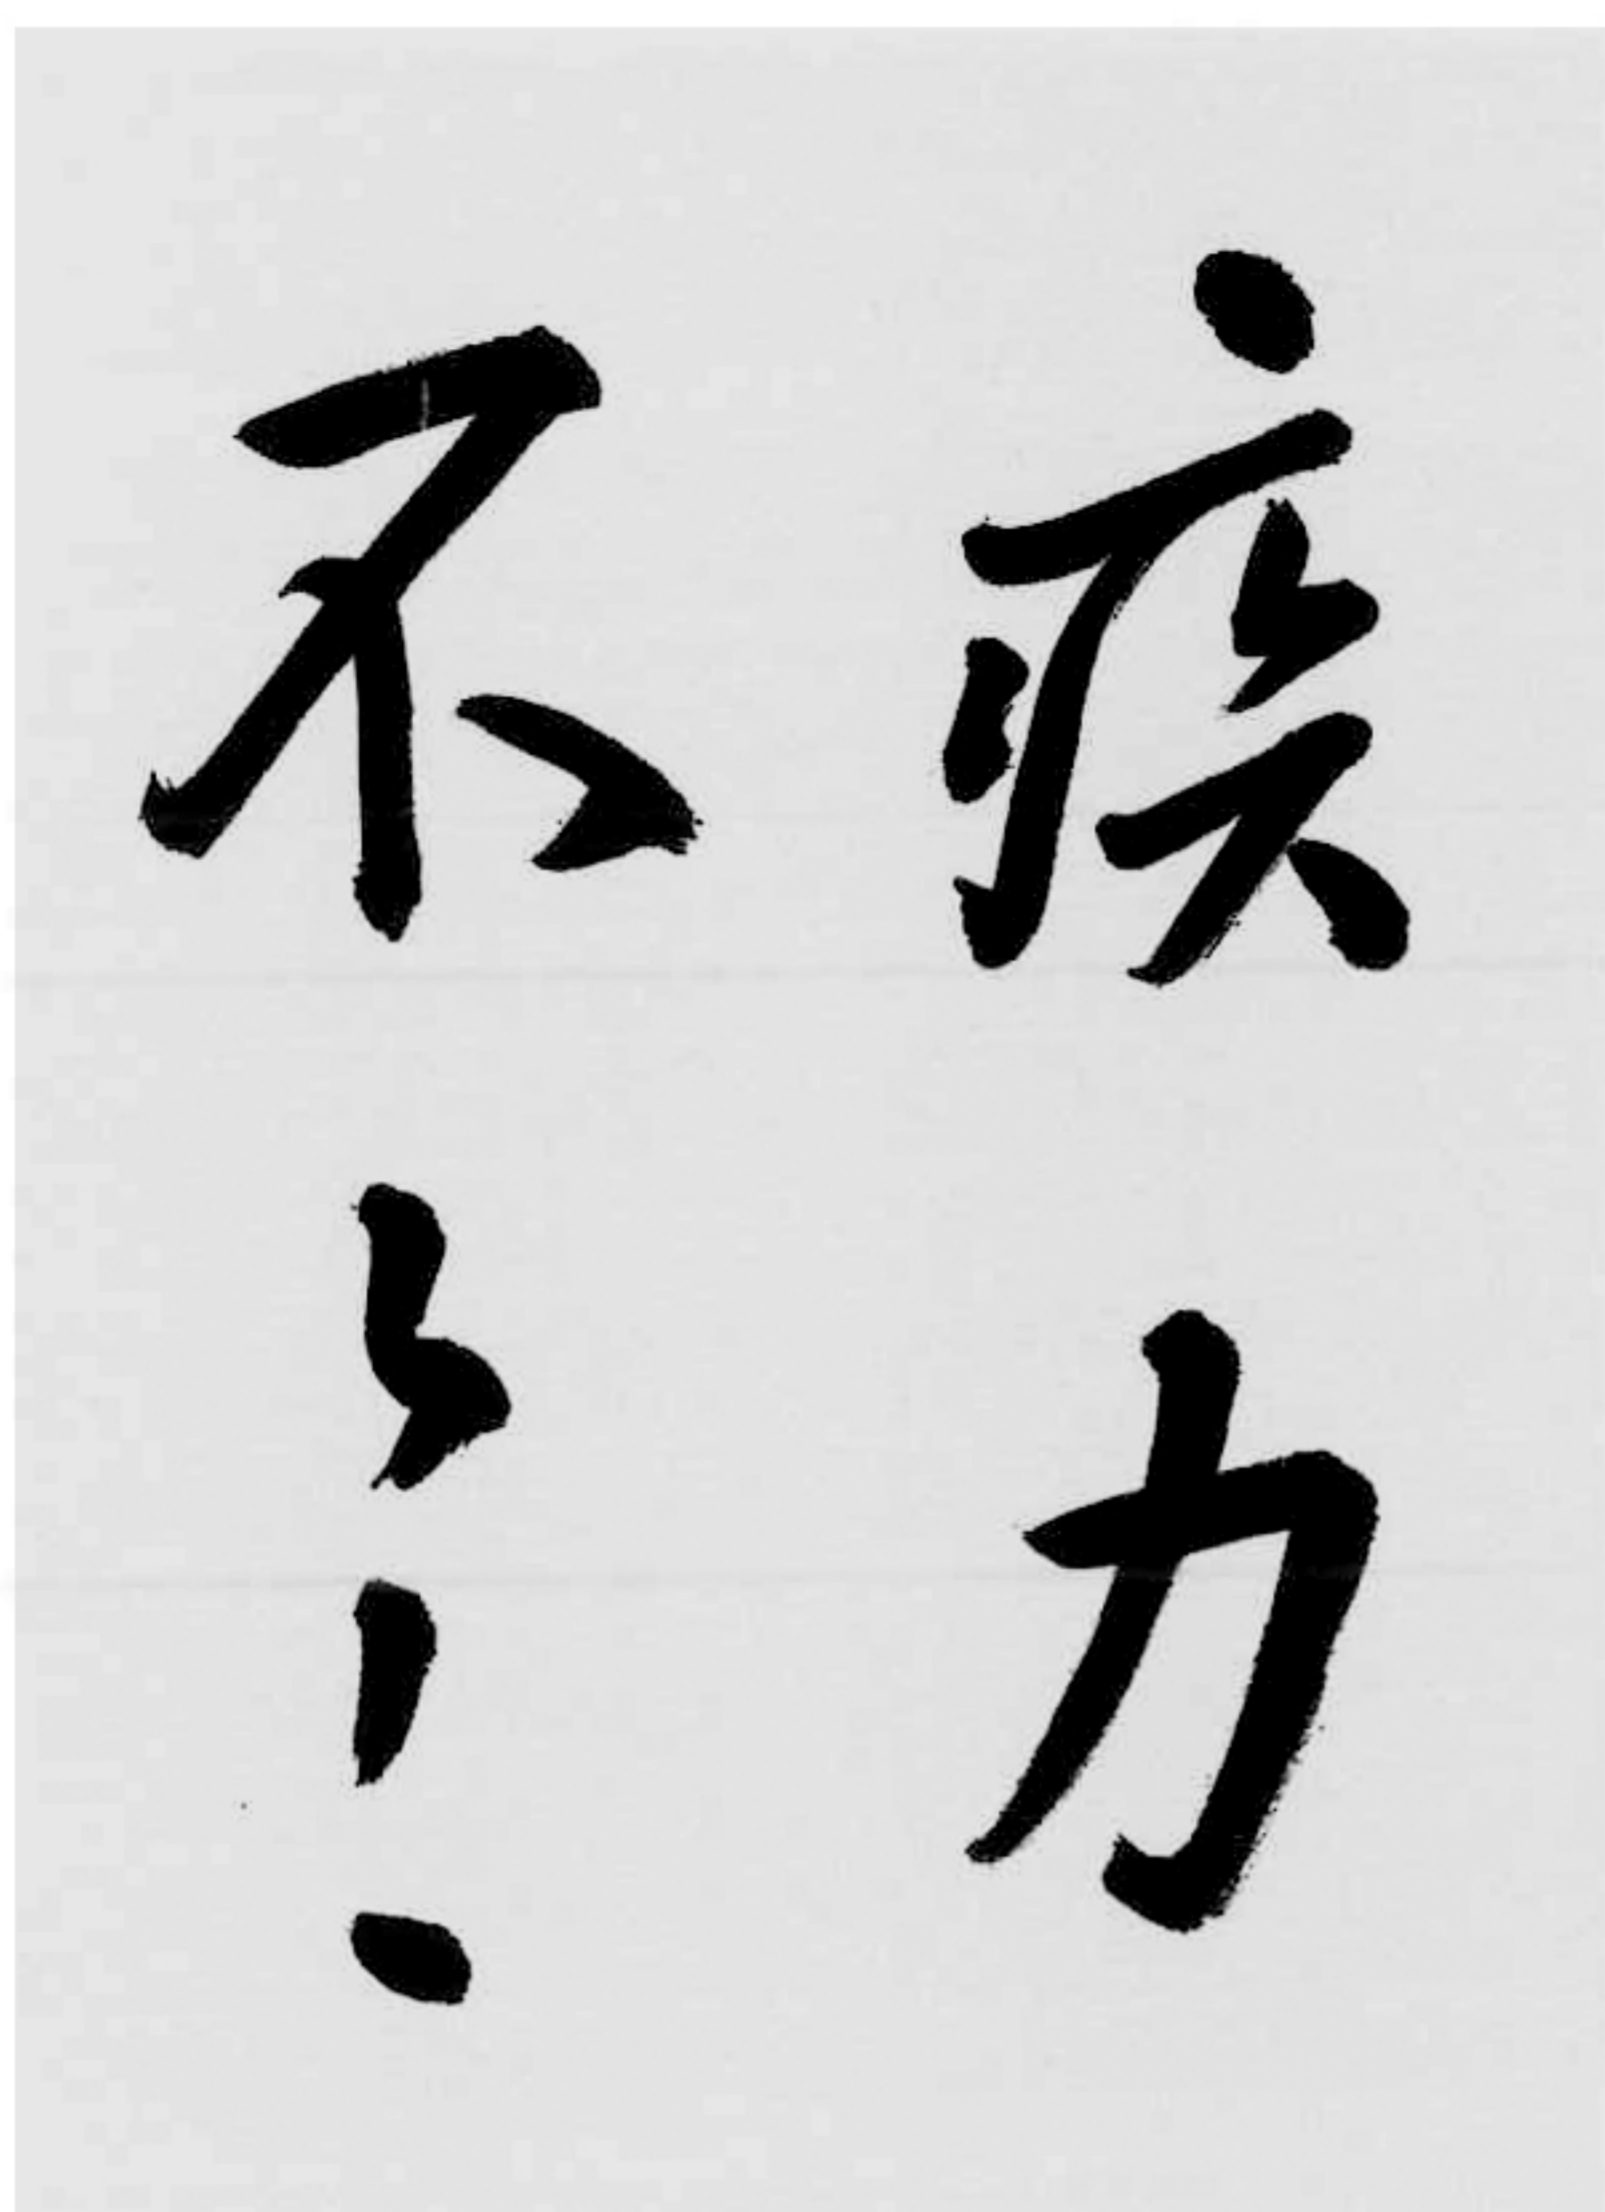 疾力
不